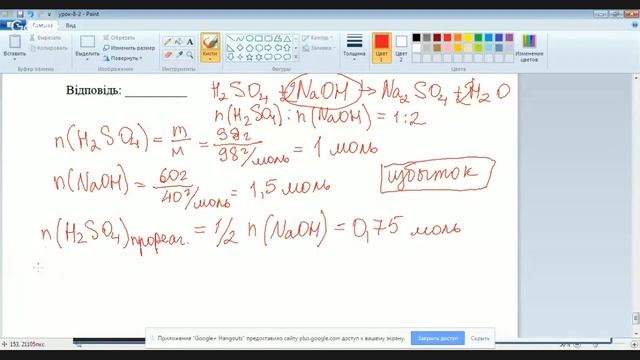 урок-8-2 - Paint
Вставить
Буфер обмена
Выделить
Обрезать
Изменить размер
Повернуть
Изображение
Инструменты
Кисти
Фигуры
Контур
Заливка
Толщина
Цвет 1
Цвет 2
Цвета
Изменение цветов
Відповідь: ____________
H₂SO₄ + 2NaOH → Na₂SO₄ + 2H₂O
n(H₂SO₄) : n(NaOH) = 1:2
n(H₂SO₄) = m/M = 98г/98г/моль = 1 моль
n(NaOH) = 60г/40г/моль = 1,5 моль
избыток
n(H₂SO₄)прореаг. = 1/2 n(NaOH) = 0,75 моль
153, 21105пкс
Приложение "Google+ Hangouts" предоставило сайту plus.google.com доступ к вашему экрану.
Закрыть доступ
Скрыть